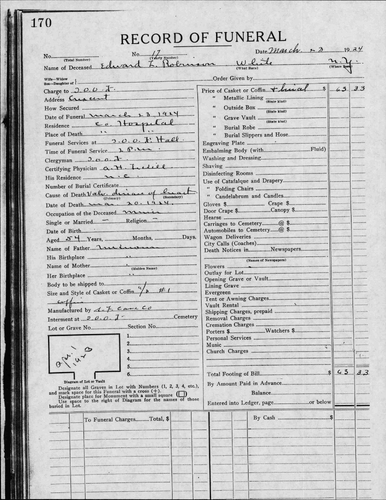 170
RECORD OF FUNERAL
No. No. 17 Date March 1924
(Total Number) (Yearly Number)
Name of Deceased Edward Robinson White N.Y.
(What Race) (Where Born)
Wife-Widow
Son-Daughter of Order Given by
Charge to I.O.O.F. Price of Casket or Coffin & burial $ 65 33
Address Metallic Lining
(State Kind)
How Secured " Outside Box
(State Kind)
Date of Funeral March 23 1924 " Grave Vault
(State Kind)
Residence Co Hospital " Burial Robe
(State Kind)
Place of Death " " " Burial Slippers and Hose
Funeral Services at I.O.O.F. Hall Engraving Plate
Time of Funeral Service 2 P.M. Embalming Body (with Fluid)
Clergyman I.O.O.F. Washing and Dressing
Shaving
Certifying Physician Disinfecting Rooms
His Residence Use of Catafalque and Drapery
Number of Burial Certificate " Folding Chairs
Cause of Death heart " Candelabrum and Candles
Date of Death Mar 20 1924 Gloves $ Crape $
Door Crape $ Canopy $
Occupation of the Deceased Miner Hearse
Single or Married - Religion - Carriages to Cemetery @ $
Date of Birth Automobiles to Cemetery @ $
Aged 54 Years, Months, Days Wagon Deliveries
Name of Father Unknown City Calls (Coaches)
His Birthplace " Death Notices in Newspapers
(Names of Newspapers)
Name of Mother "
(Maiden Name) Flowers
Her Birthplace " Outlay for Lot
Body to be shipped to Opening Grave or Vault
Size and Style of Casket or Coffin 6/3 #1 Lining Grave
coffin Evergreen
Tent or Awning Charges
Vault Rental
Manufactured by Shipping Charges, prepaid
Interment at I.O.O.F. Cemetery Removal Charges
Cremation Charges
Lot or Grave No. Section No. Porters $ Watchers $
Personal Services
1.
2. Music
3. Church Charges
4.
5. Total Footing of Bill $ 65 33
6.
Diagram of Lot or Vault By Amount Paid in Advance
Designate all Graves in Lot with Numbers (1, 2, 3, 4, etc.), Balance
and mark space for this Funeral with a cross (+).
Designate place for Monument with a small square Entered into Ledger, page or below
Use space to right of Diagram for the names of those
buried in Lot.
To Funeral Charges, Total, $ By Cash $